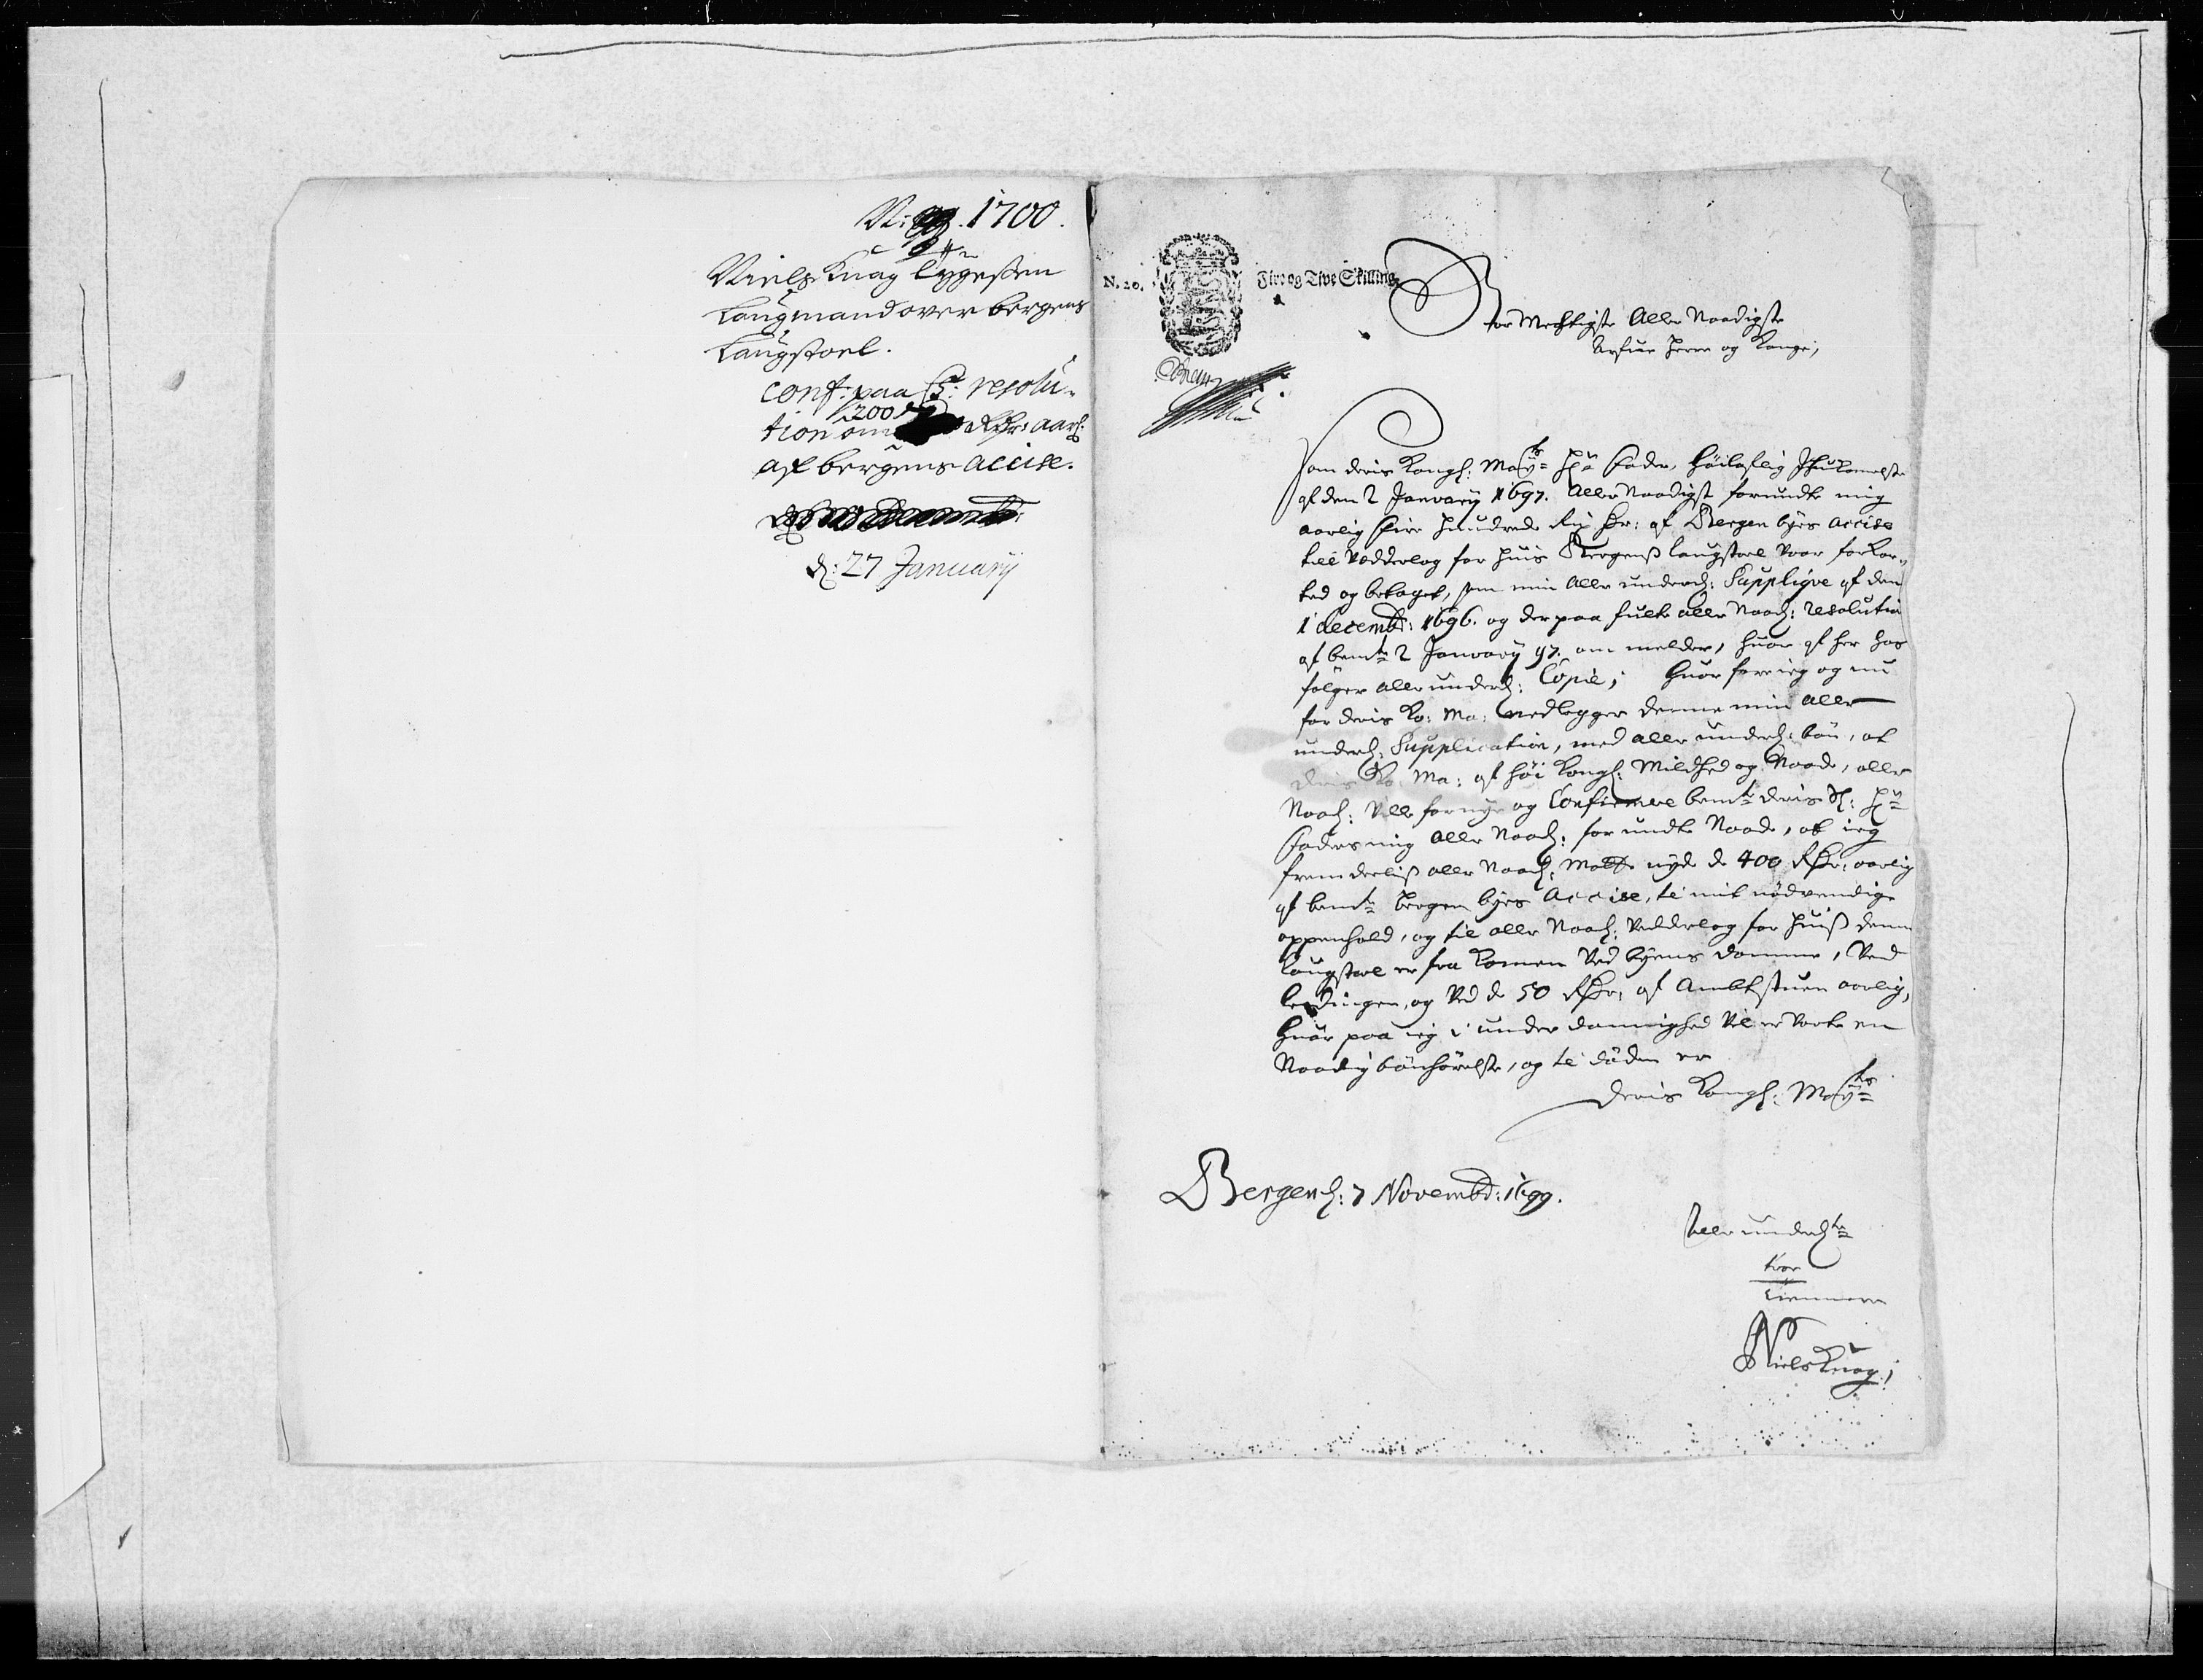 N: 1700.
Niels Knag Lygesten
Laugmand over bergens
Laugstoel.
conf: paa C5: resolu-
tion om 200 Rdr: aarl:
af bergens accise.
d: 27 Januarij
N. 20. Fire og Tive Skilling
Stor Mechtigste Aller Naadigste
Arfue Herre og Konge,
Som deris Kongl: Mayts Hr Fader, Höilaflig Ihukomelse
af den 2 Janvarij 1697. Aller Naadigst forundte mig
aarlig fire hundrede Rix Dr: af Bergen byes accise
till Vedderlag for huis Bergens laugstoel vaar forkor-
ted og betaget, som min aller underd: Suppliqve af den
1 decembr: 1696. og der paa fulte aller Naad: resolution
af bemte 2 Janvarij 97. om melder, huor af her hos
følger aller underd: Copie; Huor fore ieg og nu
for deris Ko: Ma: nedlegger denne min aller
underd: Supplication, med aller underd: bön, at
deris Ko: Ma: af höi Kongl: Mildhed og Naade, aller
Naad: Ville fornye og Confirmere bemte deris Sl: Hr
Faders mig aller Naad: forundte Naade, at ieg
fremdeelis aller Naad: Motte nyde de 400 Rdr: aarlig
af bemte Bergen byes Accise, til mit nödvendige
oppenhold, og til aller Naad: Vedderlag for huis denne
Laugstoel er fra komen Ved byens domme, Ved
leedingen, og Ved de 50 Rdr: af Ambtstuen aarlig,
Huor paa ieg i under danighed Vil er Varte en
Naadig bönhörelse, og til döden er
Deris Kongl: Mayts
Bergen d: 7 Novembr: 1699.
Aller underdte
troe
tienner
Niels Knag